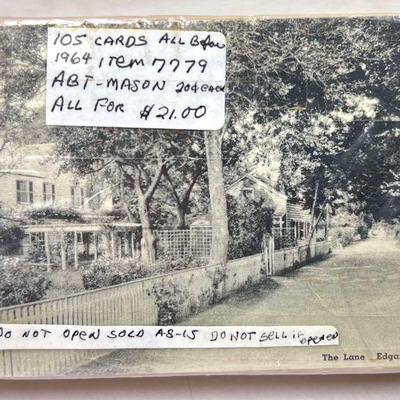 105 CARDS ALL Before
1964 ITEM 7779
ABT-MASON 20¢ EACH
ALL FOR $21.00
DO NOT OPEN SOLD AS-IS DO NOT SELL if OPENED
The Lane Edga